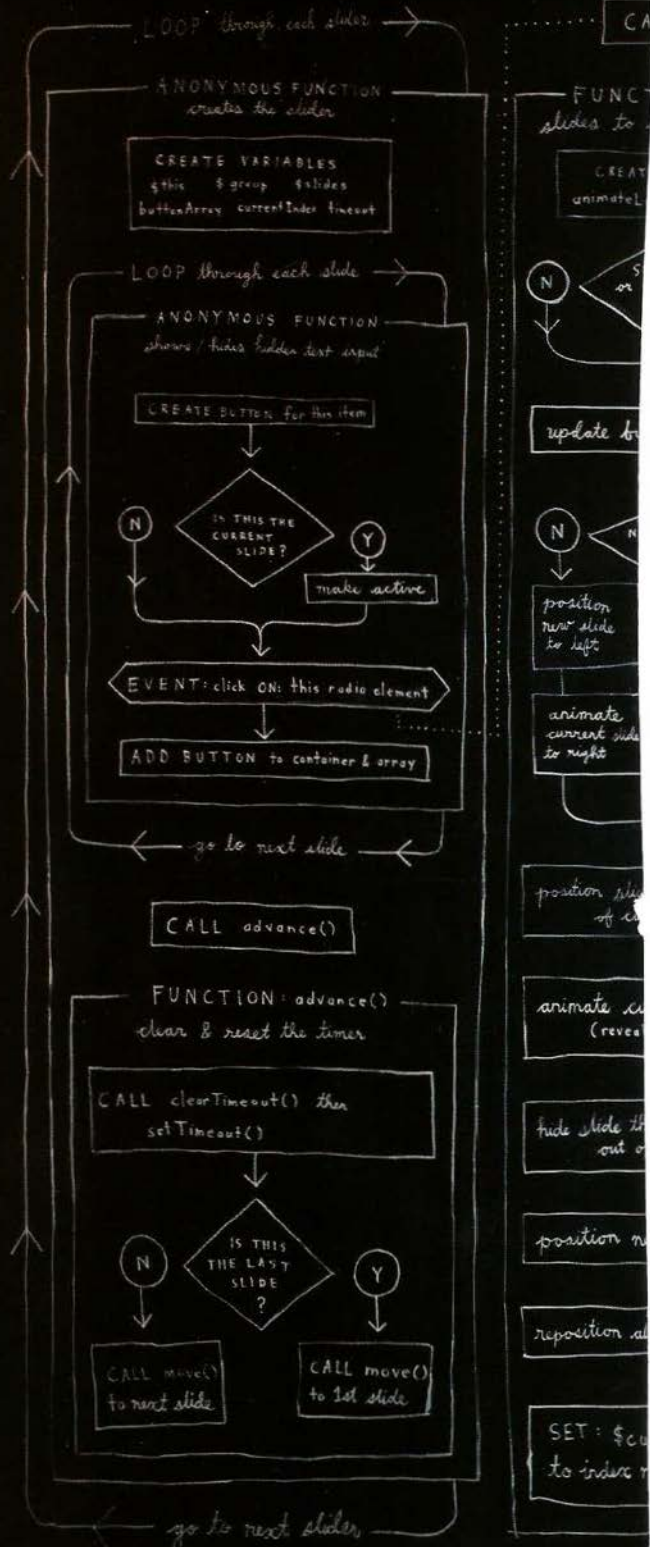 LOOP through each slider
ANONYMOUS FUNCTION
creates the slider
CREATE VARIABLES
$this $group $slides
buttonArray currentIndex timeout
LOOP through each slide
ANONYMOUS FUNCTION
shows / hides hidden text input
CREATE BUTTON for this item
IS THIS THE
CURRENT
SLIDE?
N
Y
make active
EVENT: click ON: this radio element
ADD BUTTON to container & array
go to next slide
CALL advance()
FUNCTION: advance()
clear & reset the timer
CALL clearTimeout() then
setTimeout()
IS THIS
THE LAST
SLIDE
?
N
Y
CALL move()
to next slide
CALL move()
to 1st slide
go to next slider
CA
FUNCT
slides to
CREAT
animateL
N
S
or
update b
N
N
position
new slide
to left
animate
current slide
to right
position
of
animate cu
(revea
hide slide th
out o
position n
reposition al
SET: $cu
to index n